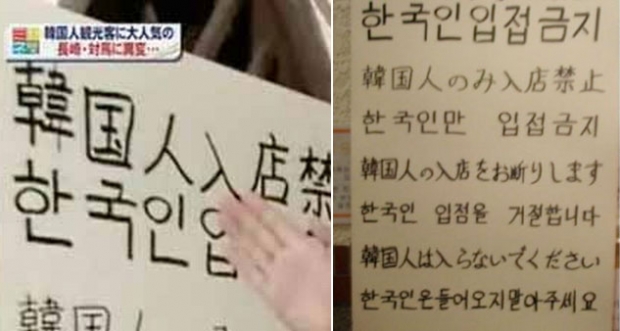 韓国人観光客に大人気の
長崎・対馬に異変…
韓国人入店禁
한국인입
한국인입접금지
韓国人のみ入店禁止
한국인만 입접금지
韓国人の入店をお断りします
한국인 입점을 거절합니다
韓国人は入らないでください
한국인은들어오지말아주세요